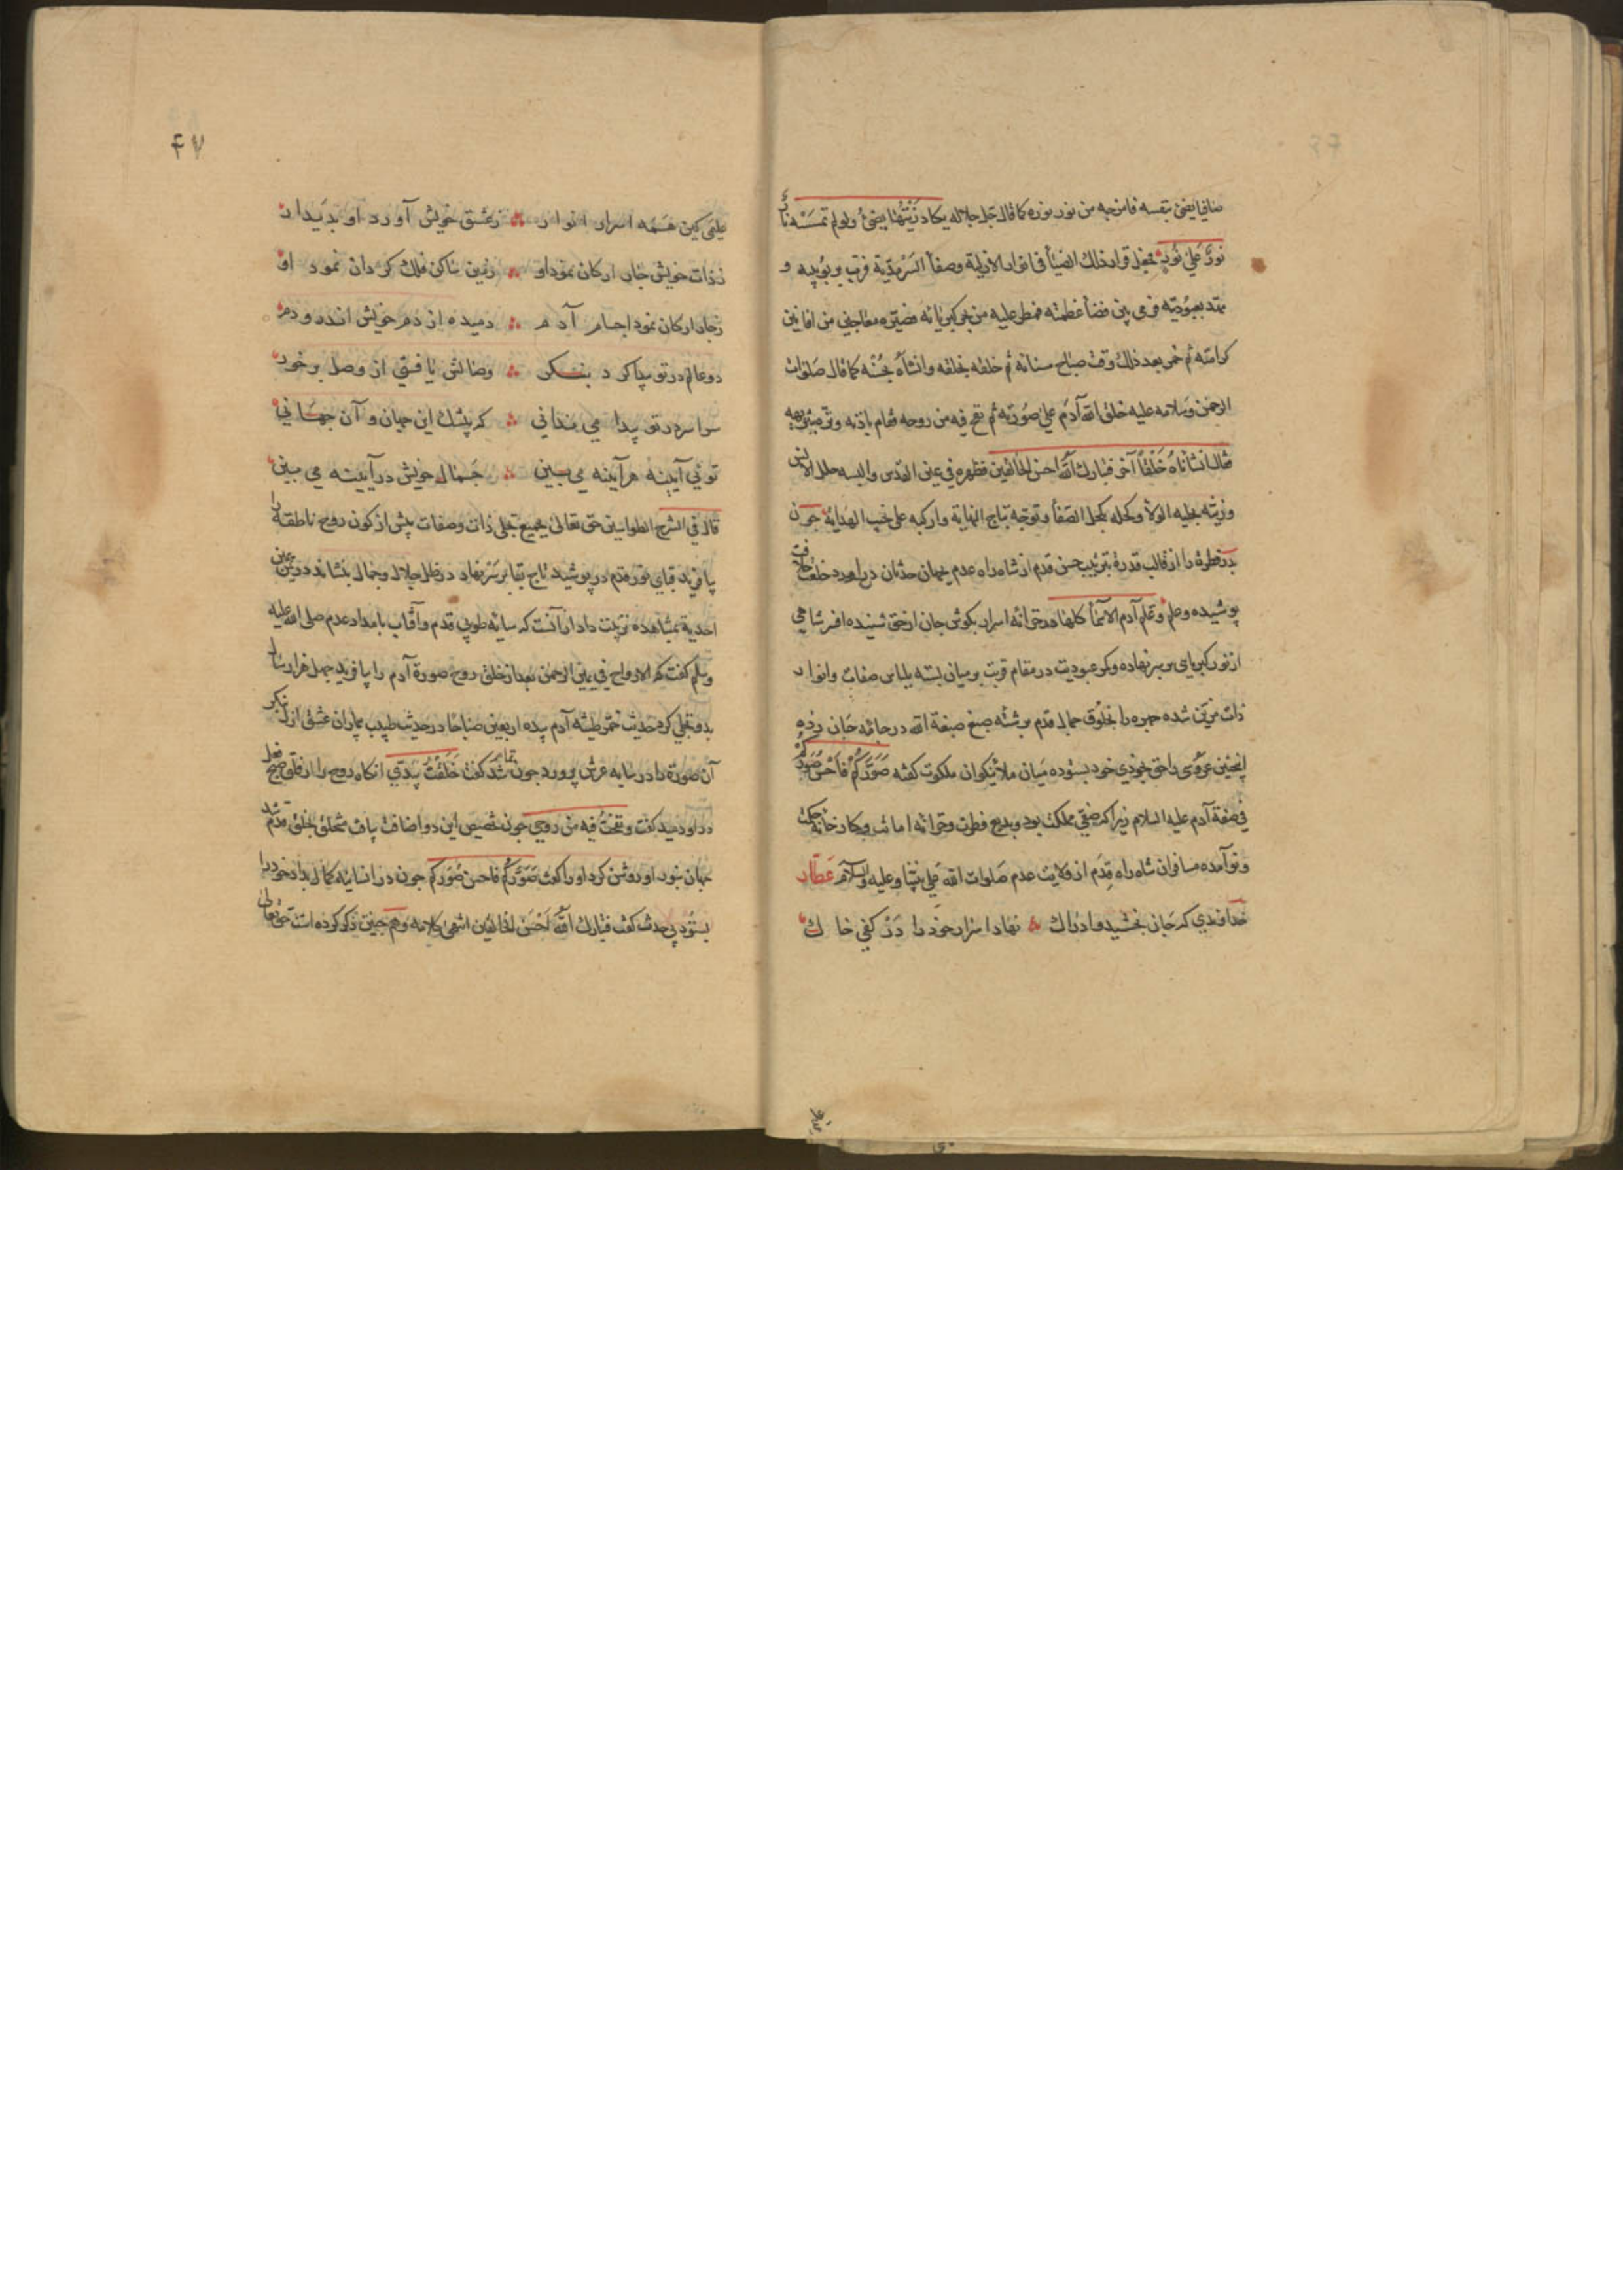 صافیا یضئ بنفسه فامزجه من نور نوره کما قال جل جلاله یکاد زَیْتُهَا یضیُٔ ولو لم تمسَسْه نارٌ
نورٌ عَلیٰ نُورٍ فجعل قرار ذلك الضیأ فی انوار الازلیة وصفأ السَرْمَدیّة فرتب و
عظمته فمطر علیه من بحر کبریائه فصیّره معاجین من افانین
کرامته ثم خمر بعد ذلك وقت صباح سنائه ثم خلقه بخلقه وانشاه کما قال صلوات
الرحمن وسلامه علیه خلق الله آدَم علیٰ صُوَرته ثم نفخ فیه من روحه فقام باذنه
فقال انشأناهُ خَلْقاً آخر فتبارك الله احسن الخالقین فطهره فی عین القدس والبسه حلل الانس
وزیّنه بحلیه الولأ وکحله بکحل الصفأ وتوّجه بتاج النهایة وارکبه علی نجب الهدایة چون
بدر فطرة را از قالب قدرة بتربیب حسن قدم از شاه راه عدم بجهان حدثان درآورد خلعت خلافت
پوشیده وعلم وعَلم آدم الاسمأ کلها در خزانه اسرار بکوش جان از حق شنیده افسر شاهی
از نور کبریای بر سر نهاده وکمر عبودیت در مقام قربت بر میان بسته بلباس صفات وانوار
ذات مزیّن شده چهره را بخلُوق جمال قدم برشته صبغ صبغة الله در جامه جان زده
اینچنین عروسی را حق بخودی خود بستوده میان ملائکوان ملکوت کفته صَوّرَکُمْ فاَحْسَنَ صُوَرَکُمْ
فی صفة آدم علیه السلام زیرا که صفیّ مملکت بود وبدیع فطرت وخزانه امانت وکارخانه حکمت
ونوآمده مسافران شاه راه قِدَم از ولایت عدم صَلوات الله عَلی نبیّنا وعلیه والسلام عَطّار
خداوندی که جَان بخشید وادراك ∴ نهاد اسرار خود را دَرْ کفی خاك
۴۷
علیمی کین هَمَه اسرار انوار ∴ زعشق خویش آورد او بدیدار
زذات خویش جان ارکان نمود او ∴ زمین ساکن فلك کردان نمود او
زجان ارکان نمود اجسام آدم ∴ دمیده از دم خویش اندرو دم
دو عالم در تو پیدا کرد بنکر ∴ وصالش یافتی از وصل برخور
سراسر در تو پیدا می ندانی ∴ که بیشك این جهان و آن جهانی
تویی آیینه هر آینه می بین ∴ جَمال خویش در آیینه می بین
قال فی الشرح الطواسین حق تعالی بجمیع تجلی ذات وصفات پیش از کون روح ناطقه را
بیافرید قبای نور قدم درپوشید تاج بقا بر سَر نهاد در ظل جلال وجمال بنشاند در یمین
احدیة بمشاهده تربیت داد از آنست که سایه طوبی قدم وآفتاب بامداد عدم صلی الله علیه
وسلم کفت که الارواح فی یمین الرحمن بعد از خلق روح صورة آدم را بیافرید چهل هزار سال
بدو تجلی کرد حدیث خمّر طینة آدم بیده اربعین صباحا در حدیث طبیب بیماران عشق ازل بنکر
آن صورة را در سایه عرش پرورد چون تمام شد کفت خَلَقْتُ بیَدَیّ آنکاه روح را از فلق صبح فعل
درو دمید کفت ونَفَخْتُ فیه من روحی چون تخصیص این دو اضافت یافت متخلق بخلق قدم شد
جهان بنور او روشن کرد او را کفت صَوَّرَکُمْ فاحسن صُوَرَکم چون در انسانیه کمال بداد خود را
بستُود بی حدث کفت فتبارك الله اَحْسَن الخالقین انتهی کلامه وهم چنین ذکر کرده است حق تعالی